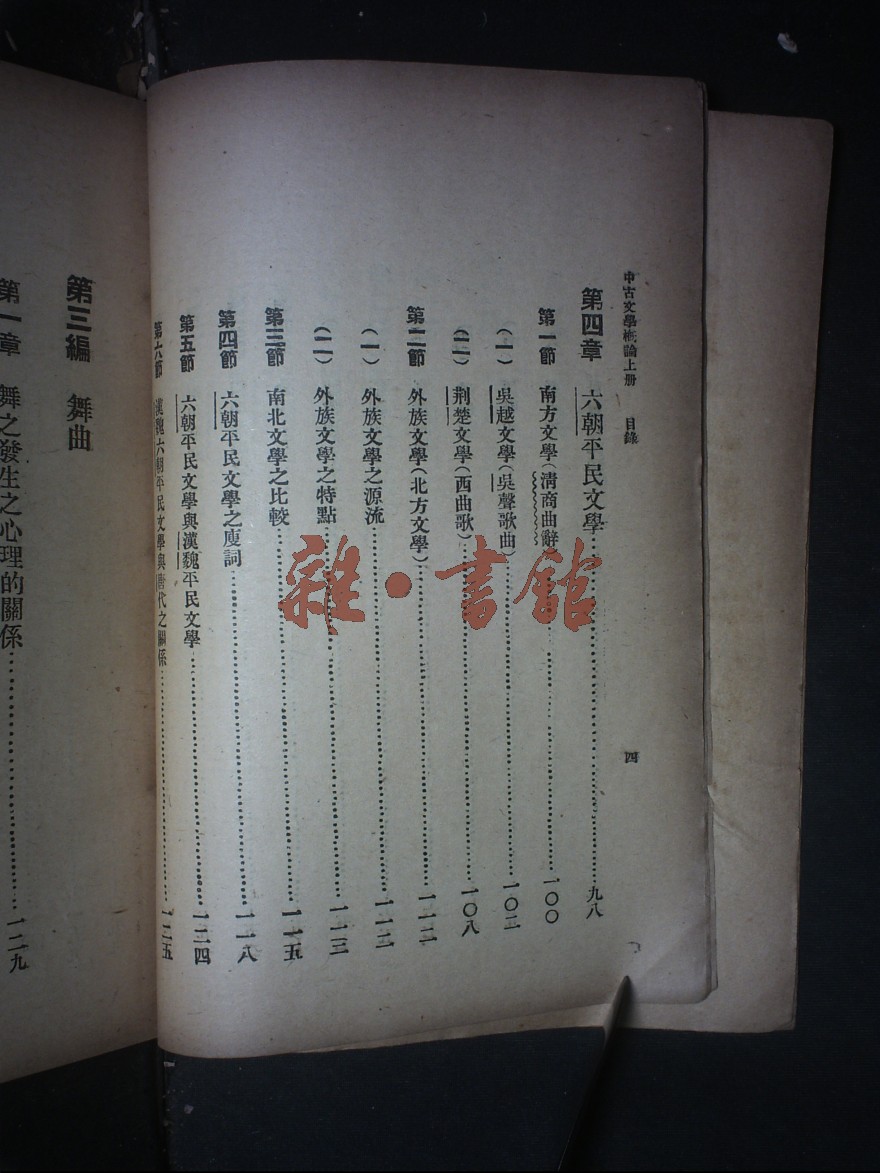 中古文學概論上册　目錄　四
第四章　六朝平民文學……九八
第一節　南方文學（淸商曲辭）……一〇〇
（一）　吳越文學（吳聲歌曲）……一〇二
（二）　荆楚文學（西曲歌）……一〇八
第二節　外族文學（北方文學）……一一二
（一）　外族文學之源流……一一二
（二）　外族文學之特點……一一三
第三節　南北文學之比較……一一五
第四節　六朝平民文學之廋詞……一一八
第五節　六朝平民文學與漢魏平民文學……一二四
第六節　漢魏六朝平民文學與唐代之關係……一二五
第三編　舞曲
第一章　舞之發生之心理的關係……一二九
雜·書館